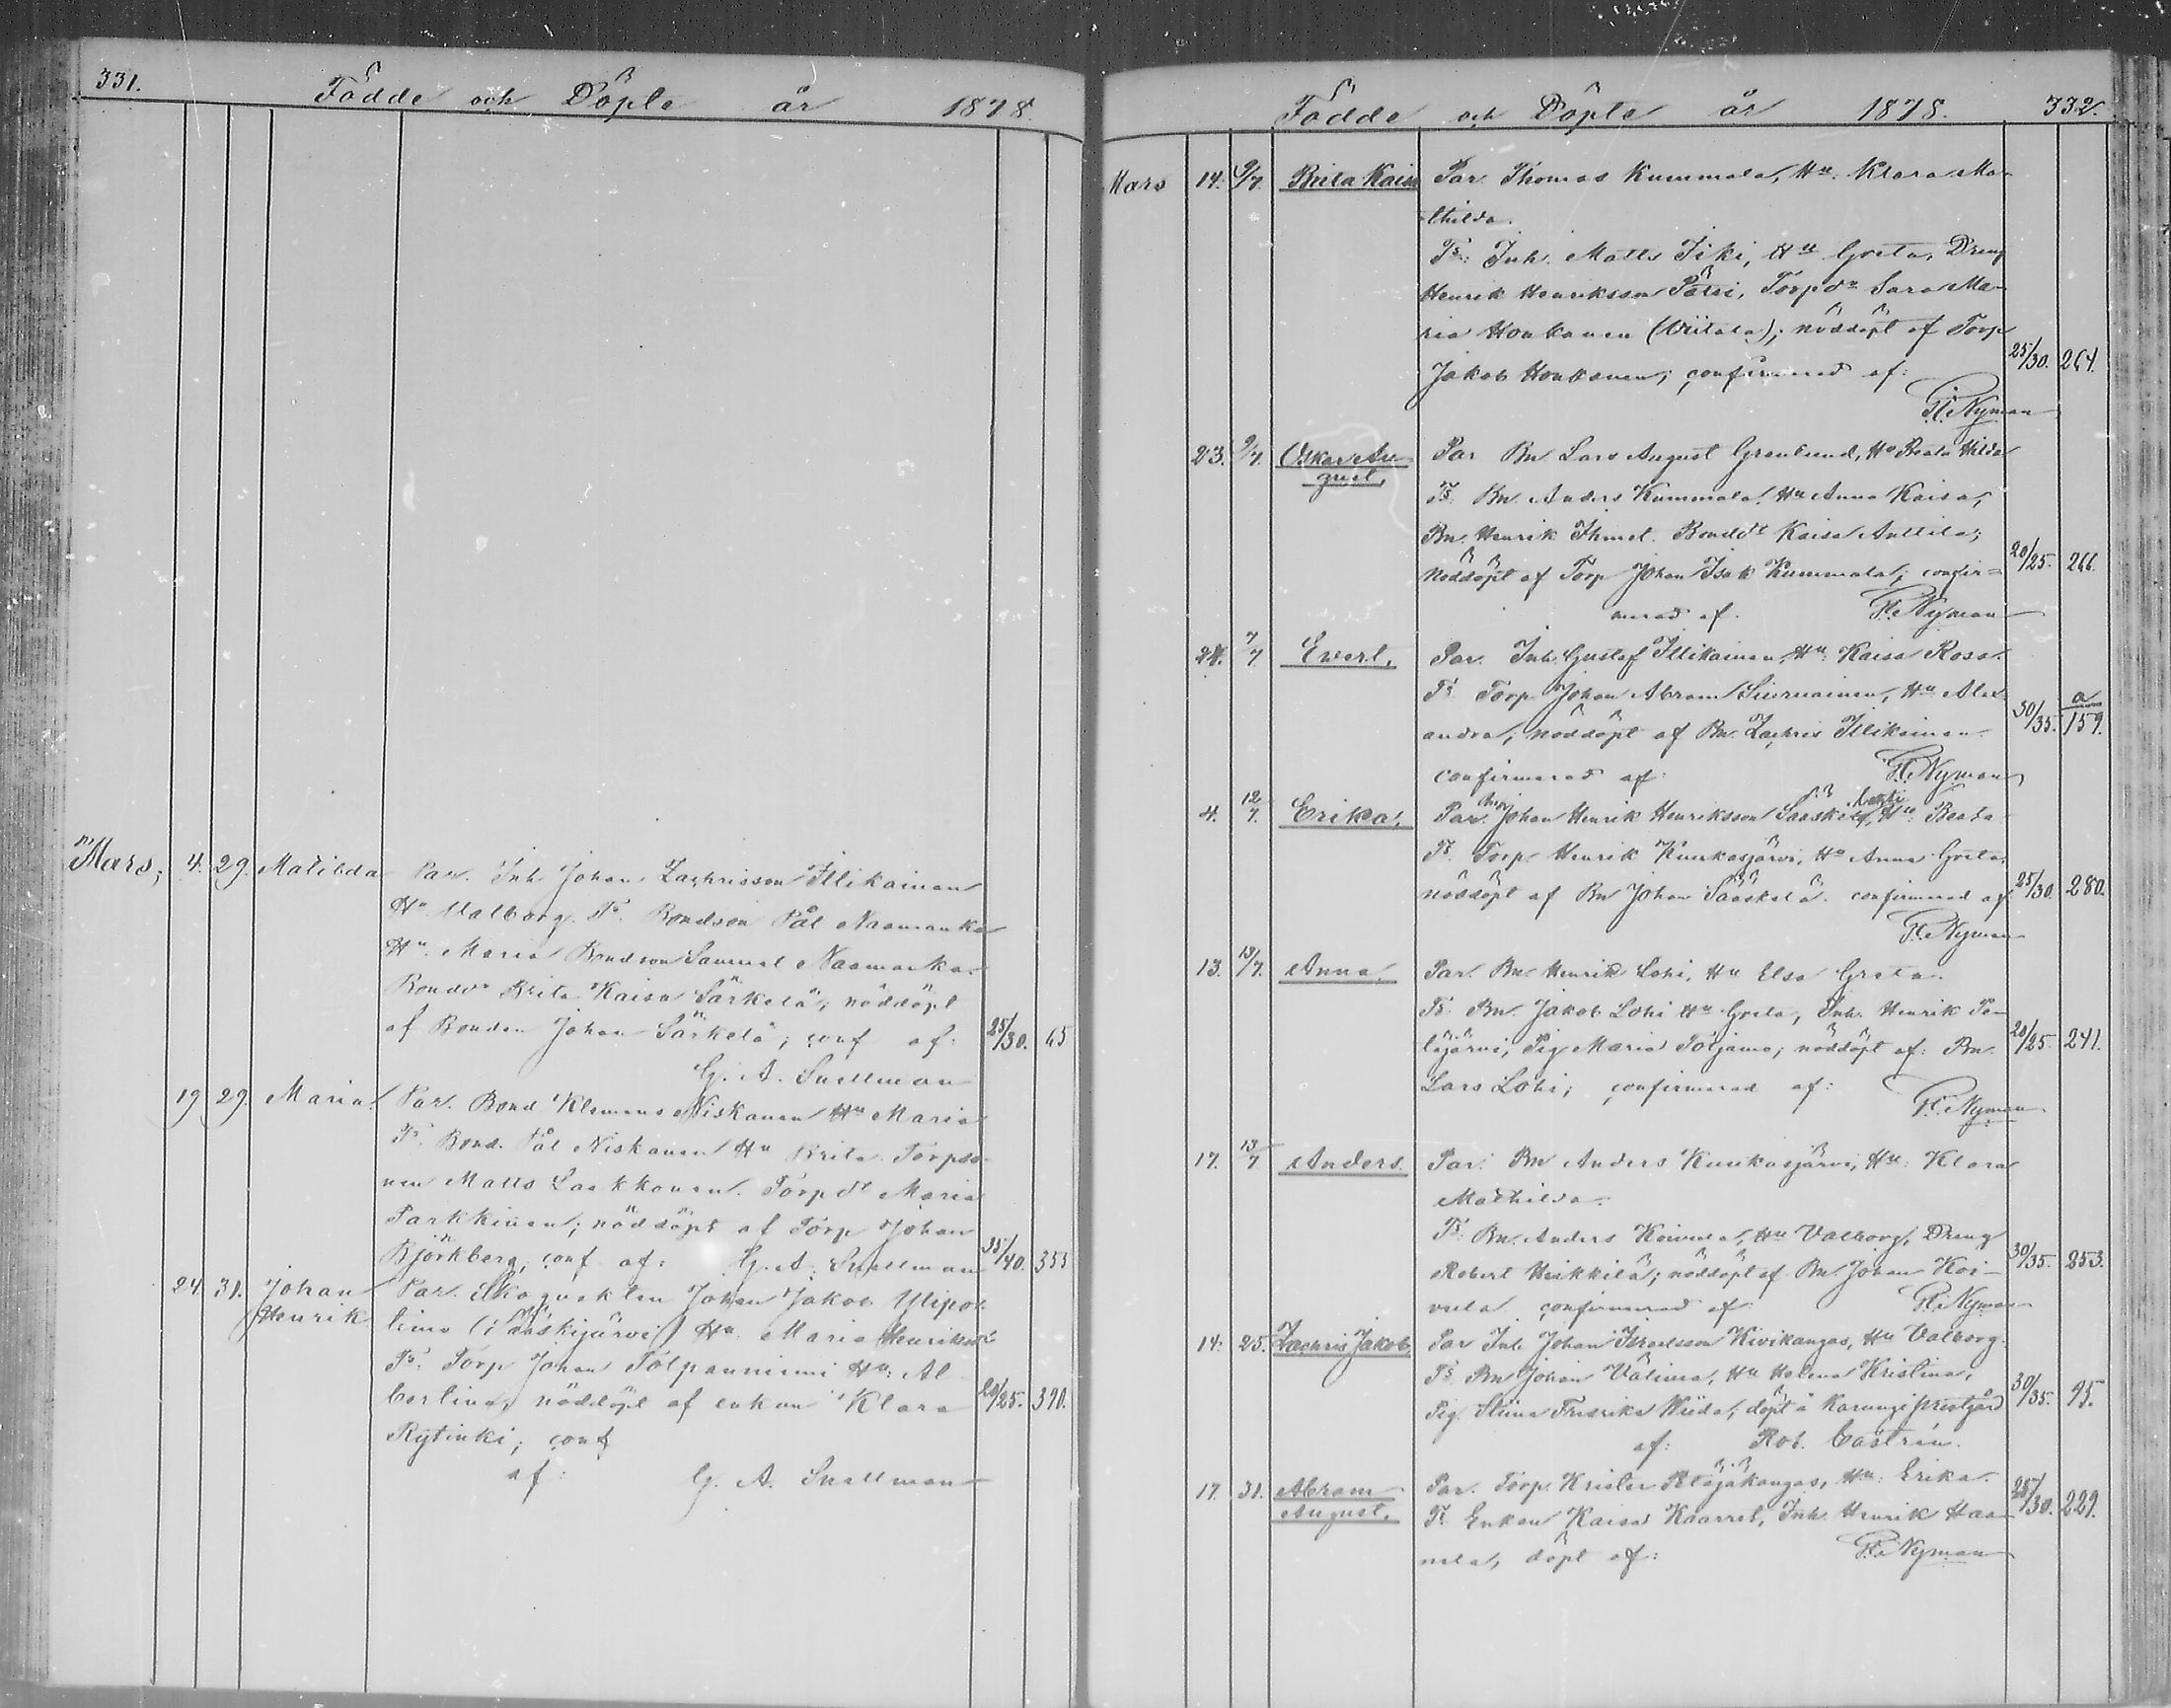 331.
Födde och Döpte år 1878.
Mars, 4. 29. Matilda Par. Inh Johan Zachrisson Illikainen
Hu Valborg. Ts. Bondson Pål Naamanka
Hu. Maria Bondson Samuel Naamanka.
Bondd. Brita Kaisa Särkelä; nöddöpt
af Bonden Johan Särkelä; conf af: 25/30. 65
G. A. Snellman
19 29. Maria. Par. Bond Klemens Niskanen Hu Maria
Ts. Bond. Pål Niskanen Hu Brita. Torpso-
nen Matts Laakkonen. Torpdr Maria
Parkkinen; nöddöpt af Torp Johan
Björkberg, conf af: G. A. Snellman 35/40. 353
24. 31. Johan Henrik Par. Skogvakten Johan Jakob Ylipor-
timo (i Sääskijärvi) Hu. Maria Henriksdr
Ts. Torp Johan Tolpanniemi Hu: Al-
bertina, nöddöpt af enkan Klara 20/25. 390.
Rytinki; conf
af: G. A. Snellman
Födde och Döpte år 1878. 332.
Mars 14. 9/7. Brita Kaisa Par. Thomas Kummala, Hu. Klara Ma-
thilda.
Ts: Inh. Matts Jiki, Hu Greta, Dreng
Henrik Henriksson Pätsi, Torpdr Sara Ma-
ria Honkanen (Viitala); nöddöpt af Torp
Jakob Honkanen; confirmerad af: 25/30. 264.
Nyman
23. 9/7. Oskar Au- Par Bn Lars August Grenlund, Hu Beata Hilda
gust, Ts. Bn. Anders Kummala, Hu Anna Kaisa,
Bn. Henrik Ihmel. Bonddr Kaisa Anttila;
Nöddöpt af Torp Johan Isak Kummala; confir= 20/25. 266.
merad af. Nyman
24. 7/7 Evert, Par. Inh. Gustaf Illikainen, Hu: Kaisa Rosa.
Ts Torp Johan Abram Siurnainen, Hu Alex-
andra; nöddöpt af Bn. Zachris Illikainen. 30/35. a 159.
confirmerad af: Nyman
4. 12/7. Erika, Par. Johan Henrik Henriksson Sääskelä, Hu. Beata
Ts. Torp Henrik Kuukasjärvi, Hu Anna Greta,
nöddöpt af Bn Johan Sääskelä. confirmerad af 25/30. 280.
Nyman
13. 13/7. Anna, Par Bn Henrik Lohi, Hu Elsa Greta.
Ts. Bn. Jakob Lohi Hu Greta, Inh. Henrik Pa-
lojärvi, Pig Maria Poijamo; nöddöpt af: Bn. 20/25. 241.
Lars Lohi; confirmerad af:
Nyman
17. 13/7 Anders. Par: Bn Anders Kuukasjärvi, Hu: Klara
Mathilda.
Ts: Bn. Anders Koivula, Hu Valborg, Dreng
Robert Heikkilä; nöddöpt af Bn. Johan Koi- 30/35. 253.
vula confirmerad af Nyman
14. 25. Zachris Jakob, Par Inh Johan Israelsson Kivikangas, Hu Valborg.
Ts Bn Johan Välimaa, Hu Helena Kristina,
Pig. Stina Fredrika Wiida; döpt å Karungi prestgård 30/35. 95.
af: Rob. Castrén.
17. 31. Abram Par. Torp. Krister Petäjäkangas, Hu: Erika.
August, Ts. Enkan Kaisa Kaarret, Inh. Henrik Haa- 25/30. 229.
nela, döpt af: Nyman